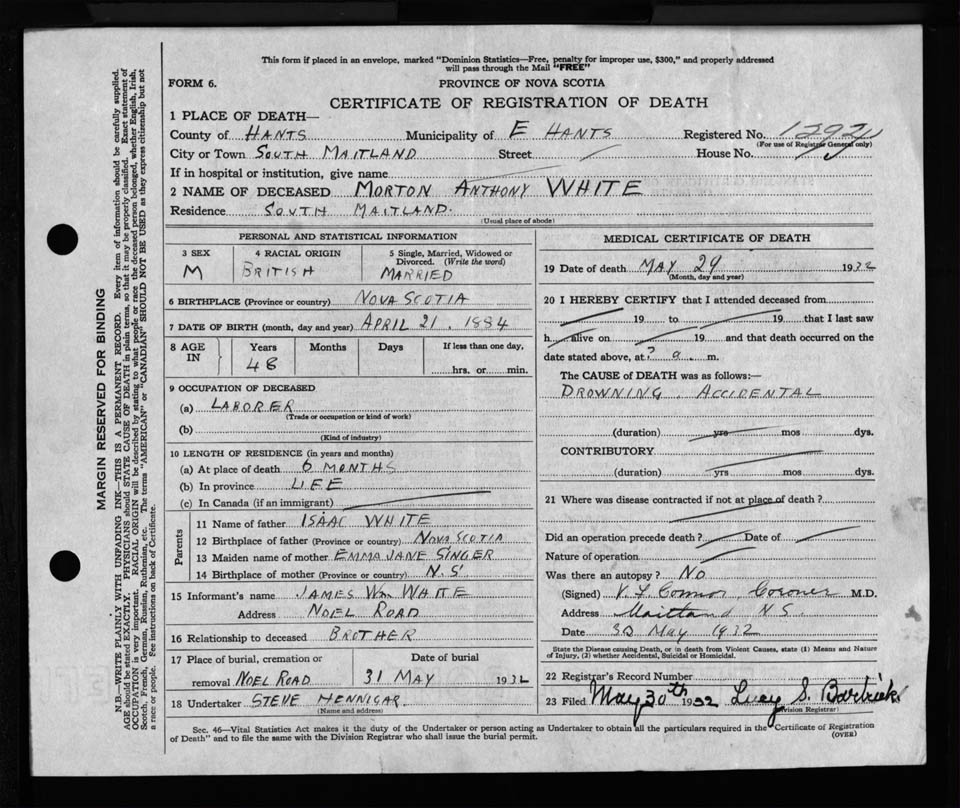 This form if placed in an envelope, marked "Dominion Statistics—Free, penalty for improper use, $300," and properly addressed
will pass through the Mail "FREE"
FORM 6.
PROVINCE OF NOVA SCOTIA
CERTIFICATE OF REGISTRATION OF DEATH
1 PLACE OF DEATH—
County of HANTS Municipality of E HANTS Registered No. 1292
(For use of Registrar General only)
City or Town SOUTH MAITLAND Street / House No.
If in hospital or institution, give name
2 NAME OF DECEASED MORTON ANTHONY WHITE
Residence SOUTH MAITLAND.
(Usual place of abode)
PERSONAL AND STATISTICAL INFORMATION
3 SEX 4 RACIAL ORIGIN 5 Single, Married, Widowed or
Divorced. (Write the word)
M BRITISH MARRIED
6 BIRTHPLACE (Province or country) NOVA SCOTIA
7 DATE OF BIRTH (month, day and year) APRIL 21. 1884
8 AGE IN Years Months Days If less than one day,
48 hrs. or min.
9 OCCUPATION OF DECEASED
(a) LABORER
(Trade or occupation or kind of work)
(b)
(Kind of industry)
10 LENGTH OF RESIDENCE (in years and months)
(a) At place of death 6 MONTHS
(b) In province LIFE
(c) In Canada (if an immigrant)
Parents
11 Name of father ISAAC WHITE
12 Birthplace of father (Province or country) NOVA SCOTIA
13 Maiden name of mother EMMA JANE SINGER
14 Birthplace of mother (Province or country) N.S.
15 Informant's name JAMES Wm WHITE
Address NOEL ROAD
16 Relationship to deceased BROTHER
17 Place of burial, cremation or Date of burial
removal NOEL ROAD 31 MAY 1932
18 Undertaker STEVE HENNIGAR
(Name and address)
MEDICAL CERTIFICATE OF DEATH
19 Date of death MAY 29 1932
(Month, day and year)
20 I HEREBY CERTIFY that I attended deceased from
19 to 19 that I last saw
h alive on 19 and that death occurred on the
date stated above, at ? a. m.
The CAUSE of DEATH was as follows:—
DROWNING. ACCIDENTAL
(duration) yrs mos dys.
CONTRIBUTORY
(duration) yrs mos dys.
21 Where was disease contracted if not at place of death?
Did an operation precede death? Date of
Nature of operation
Was there an autopsy? NO
(Signed) Connor, Coroner M.D.
Address Maitland N.S.
Date 30 May 1932
State the Disease causing Death, or in death from Violent Causes, state (1) Means and Nature
of Injury, (2) whether Accidental, Suicidal or Homicidal.
22 Registrar's Record Number
23 Filed May 30th 1932 Lucy S.
Division Registrar)
Sec. 46—Vital Statistics Act makes it the duty of the Undertaker or person acting as Undertaker to obtain all the particulars required in the "Certificate of Registration
of Death" and to file the same with the Division Registrar who shall issue the burial permit. (OVER)
MARGIN RESERVED FOR BINDING
N.B.—WRITE PLAINLY WITH UNFADING INK—THIS IS A PERMANENT RECORD. Every item of information should be carefully supplied.
AGE should be stated EXACTLY. PHYSICIANS should STATE CAUSE OF DEATH in plain terms, so that it may be properly classified. Exact statement of
OCCUPATION is very important. RACIAL ORIGIN will be described by stating to what people or race the deceased person belonged, whether English, Irish,
Scotch, French, German, Russian, Ruthenian, etc. The terms "AMERICAN" or "CANADIAN" SHOULD NOT BE USED as they express citizenship but not
a race or people. See instructions on back of Certificate.